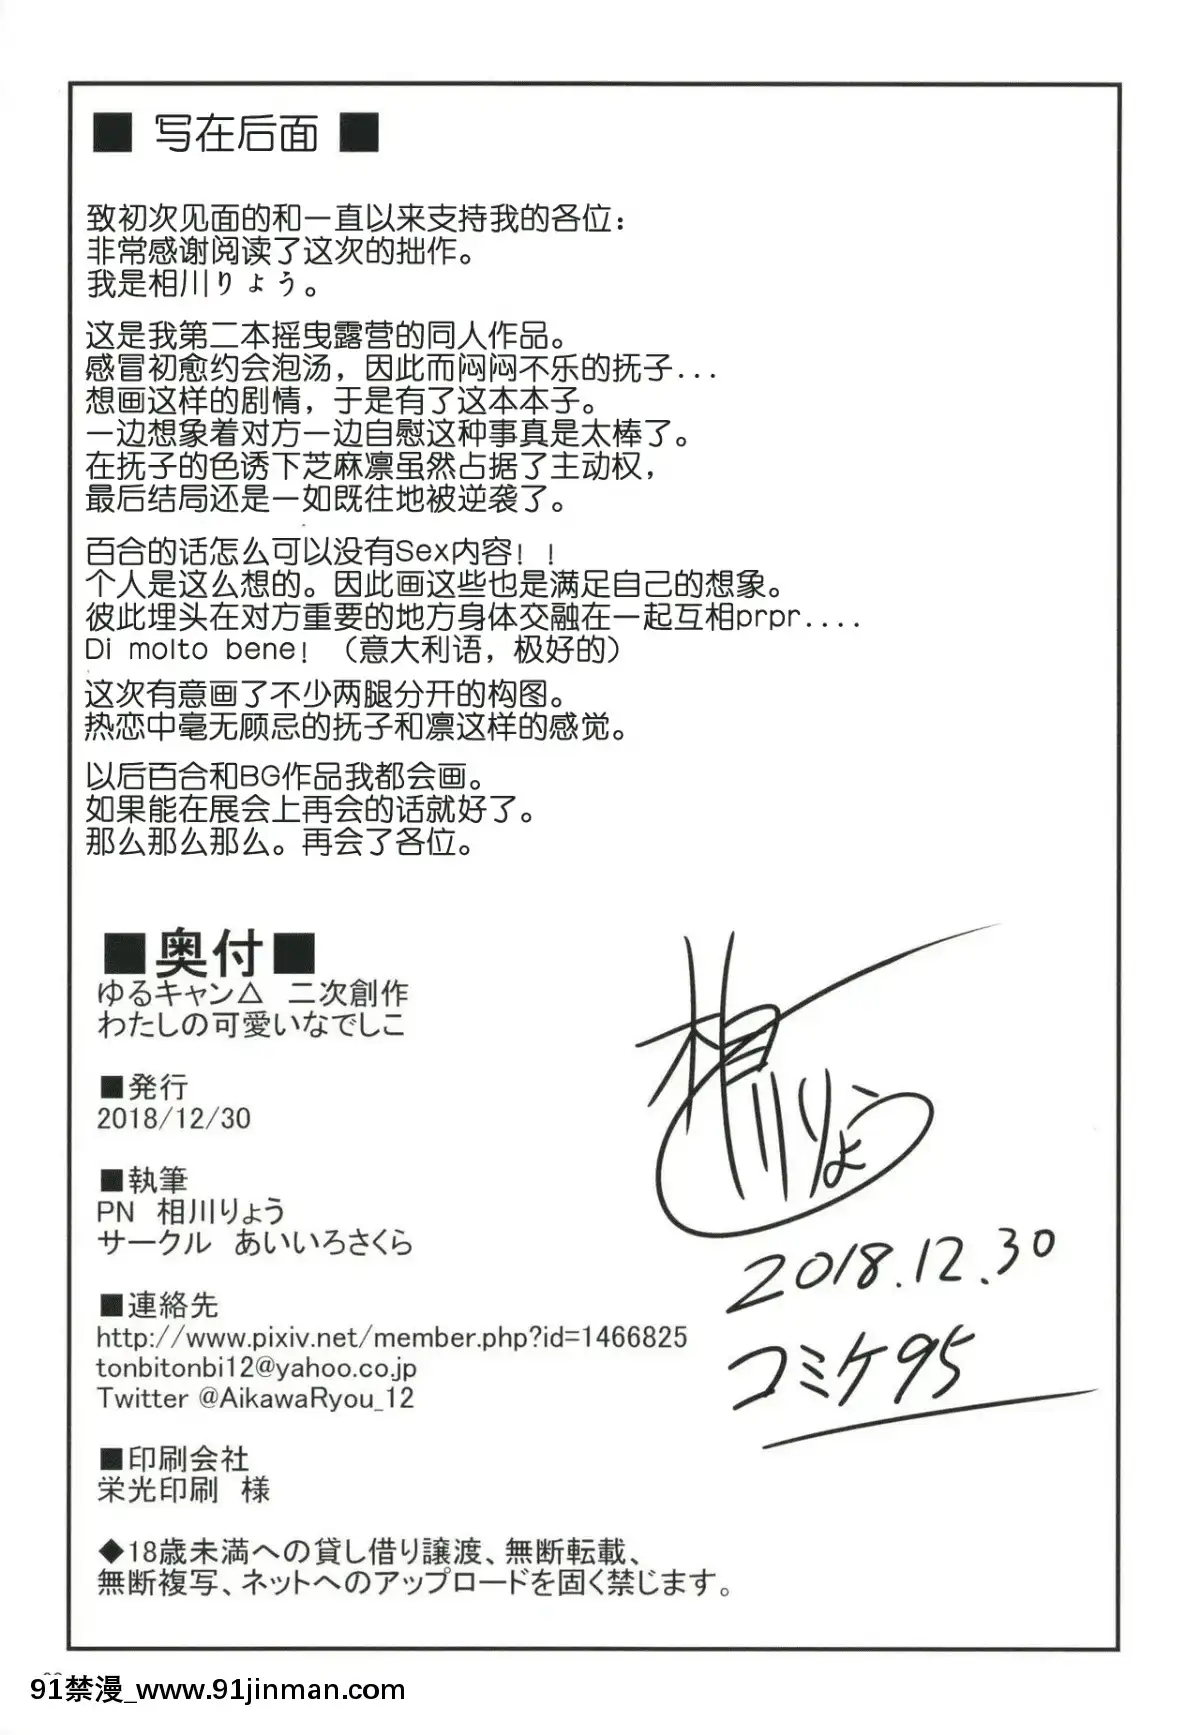 ■ 写在后面 ■
致初次见面的和一直以来支持我的各位：
非常感谢阅读了这次的拙作。
我是相川りょう。
这是我第二本摇曳露营的同人作品。
感冒初愈约会泡汤，因此而闷闷不乐的抚子...
想画这样的剧情，于是有了这本本子。
一边想象着对方一边自慰这种事真是太棒了。
在抚子的色诱下芝麻凛虽然占据了主动权，
最后结局还是一如既往地被逆袭了。
百合的话怎么可以没有Sex内容！！
个人是这么想的。因此画这些也是满足自己的想象。
彼此埋头在对方重要的地方身体交融在一起互相prpr....
Di molto bene！（意大利语，极好的）
这次有意画了不少两腿分开的构图。
热恋中毫无顾忌的抚子和凛这样的感觉。
以后百合和BG作品我都会画。
如果能在展会上再会的话就好了。
那么那么那么。再会了各位。
■奥付■
ゆるキャン△　二次創作
わたしの可愛いなでしこ
■発行
2018/12/30
■執筆
PN　相川りょう
サークル　あいいろさくら
■連絡先
http://www.pixiv.net/member.php?id=1466825
tonbitonbi12@yahoo.co.jp
Twitter @AikawaRyou_12
■印刷会社
栄光印刷　様
◆18歳未満への貸し借り譲渡、無断転載、
無断複写、ネットへのアップロードを固く禁じます。
相川りょう
2018.12.30
コミケ95
91禁漫_www.91jinman.com